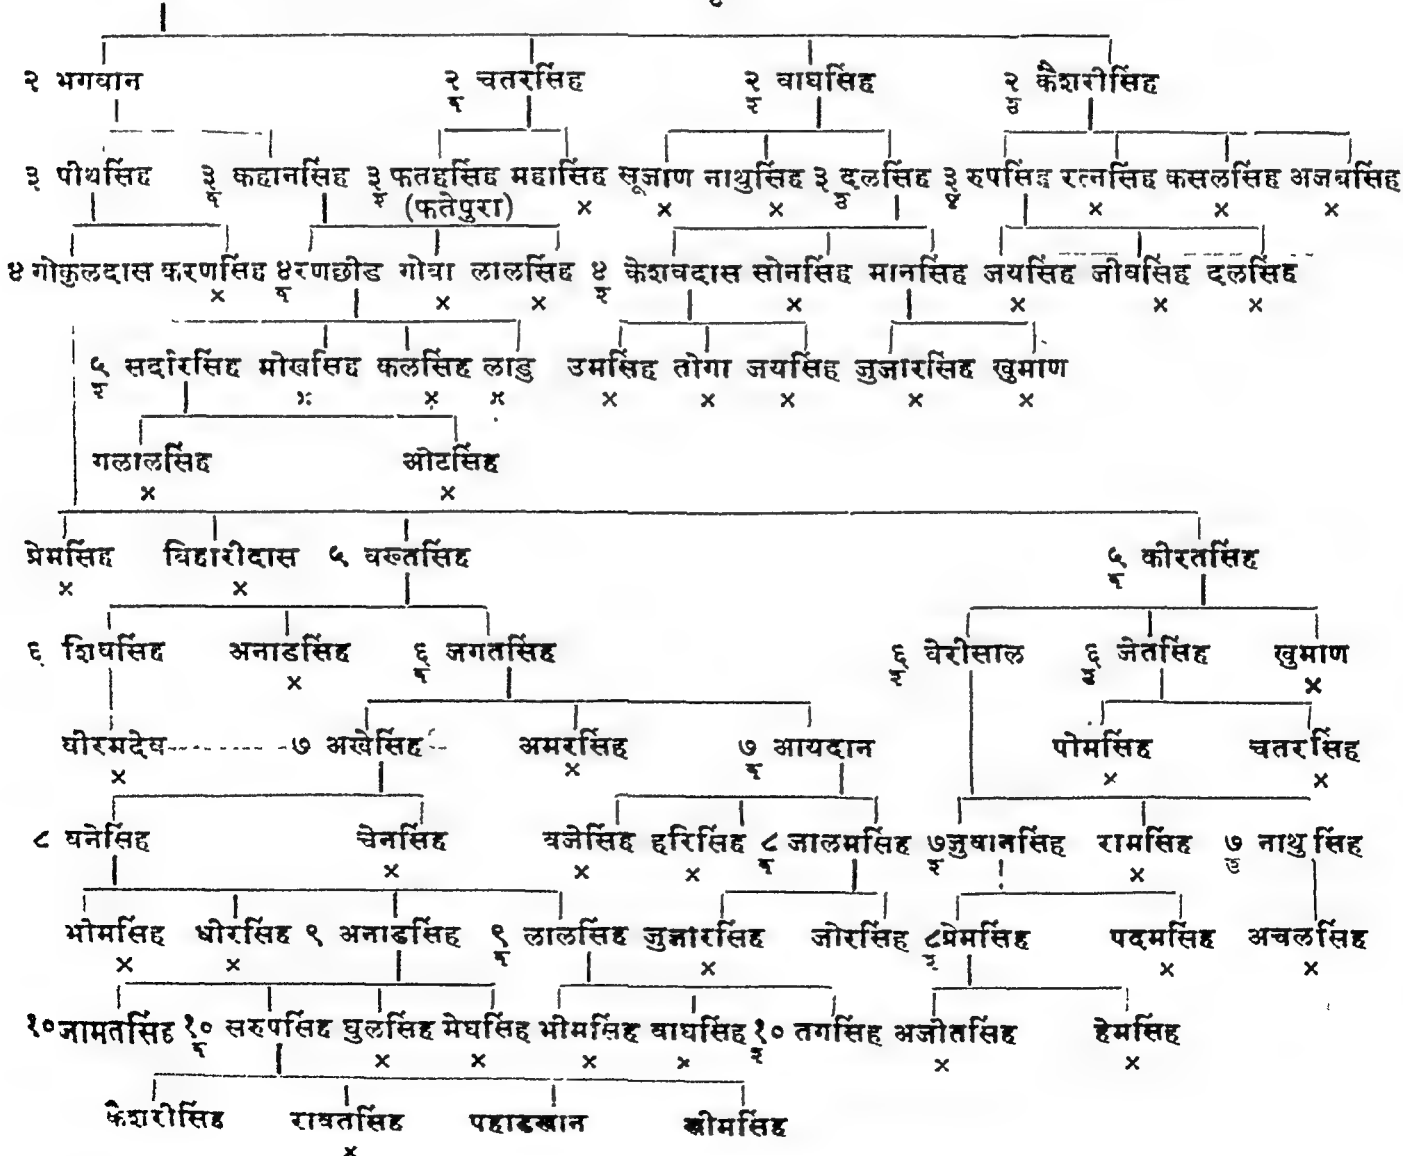 २ भगवान २/१ चतरसिंह २/२ वाघसिंह २/३ कैशरीसिंह
३ पीथसिंह ३/१ कहानसिंह ३/२ फतहसिंह महासिंह सूजाण नाथुसिंह ३/३ दलसिंह ३/४ रुपसिंह रत्नसिंह कसलसिंह अजबसिंह
(फतेपुरा) × × × × × ×
४ गोकुलदास करणसिंह ४/१ रणछोड गोवा लालसिंह ४/२ केशवदास सोनसिंह मानसिंह जयसिंह जीवसिंह दलसिंह
× × × × × × ×
५/२ सर्दारसिंह मोखसिंह कलसिंह लाडु उमसिंह तोगा जयसिंह जुजारसिंह खुमाण
× × × × × × × ×
गलालसिंह ओटसिंह
× ×
प्रेमसिंह बिहारीदास ५ वख्तसिंह ५/१ कीरतसिंह
× ×
६ शिवसिंह अनाडसिंह ६/१ जगतसिंह ६/२ वेरीसाल ६/३ जेतसिंह खुमाण
× ×
वीरमदेव ७ अखेसिंह अमरसिंह ७/१ आयदान पोमसिंह चतरसिंह
× × × ×
८ वनेसिंह चेनसिंह वजेसिंह हरिसिंह ८/१ जालमसिंह ७/२ जुवानसिंह रामसिंह ७/३ नाथुसिंह
× × × ×
भोमसिंह धीरसिंह ९ अनाडसिंह ९/१ लालसिंह जुजारसिंह जोरसिंह ८/२ प्रेमसिंह पदमसिंह अचलसिंह
× × × × ×
१० जामतसिंह १०/१ सरुपसिंह घुलसिंह मेघसिंह भीमसिंह वाघसिंह १०/२ तगसिंह अजीतसिंह हेमसिंह
× × × × × ×
कैशरीसिंह रावतसिंह पहाडखान भीमसिंह
×